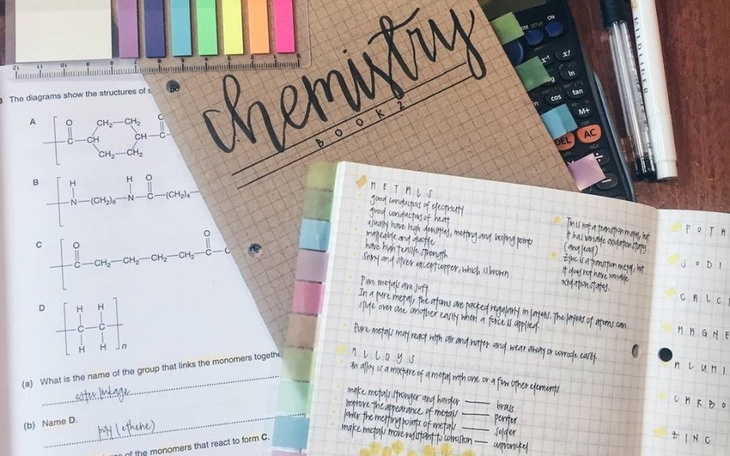 chemistry
BOOK 2
The diagrams show the structures of
A
B
C
D
(a) What is the name of the group that links the monomers togethe
ester linkage
(b) Name D.
poly(ethene)
of the monomers that react to form C.
ON
x!
ln
cos tan
M+
DEL AC
MILDLINER
METALS
good conductors of electricity
good conductors of heat
usually have high densities, melting and boiling points
malleable and ductile
have high tensile strength
shiny and silver except copper, which is brown
Pure metals are soft.
In a pure metal, the atoms are packed regularly in layers. The layers of atoms can
slide over one another easily when a force is applied.
Pure metals may react with air and water and wear away or corrode easily.
ALLOYS
an alloy is a mixture of a metal with one or a few other elements
make metals stronger and harder — brass
improve the appearance of metals — pewter
lower the melting points of metals — solder
make metals more resistant to corrosion — cupronickel
This is not a transition metal, but
it has variable oxidation states
(and lead)
Zinc is a transition metal, but
it does not have variable
oxidation states.
POTA
SODI
CALCI
MAGNE
ALUMI
CARBO
ZINC